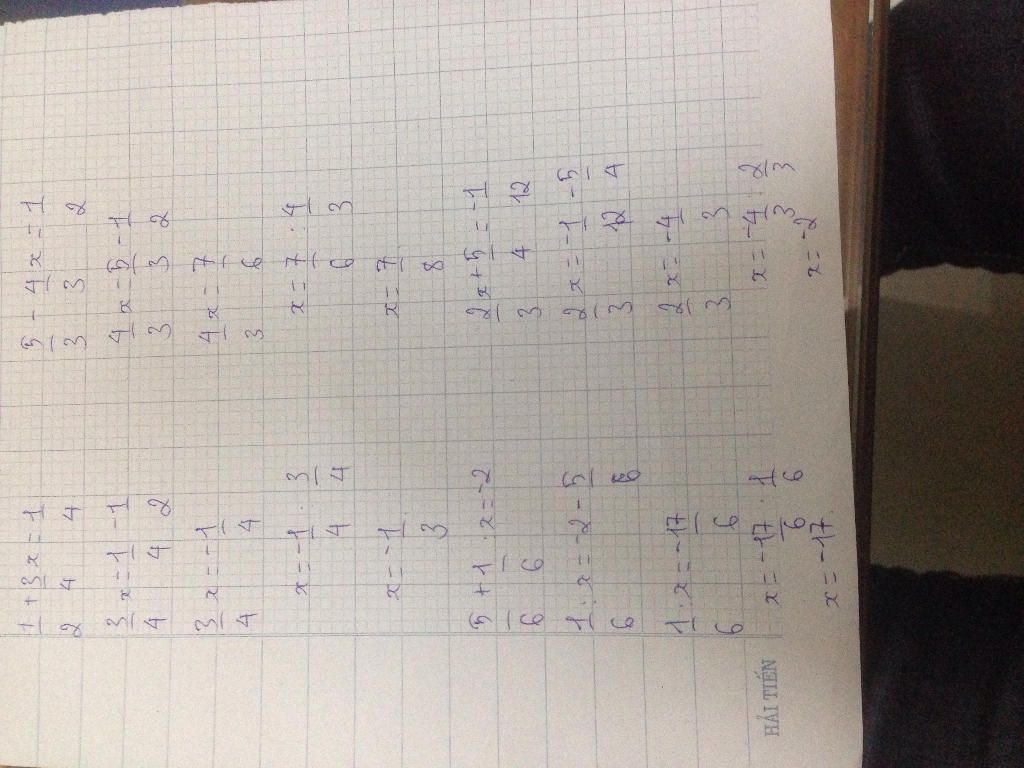 1/2 + 3/4 x = 1/4
3/4 x = 1/4 - 1/2
3/4 x = -1/4
x = -1/4 : 3/4
x = -1/3
5/6 + 1/6 . x = -2
1/6 . x = -2 - 5/6
1/6 . x = -17/6
x = -17/6 : 1/6
x = -17
5/3 - 4/3 x = 1/2
4/3 x = 5/3 - 1/2
4/3 x = 7/6
x = 7/6 : 4/3
x = 7/8
2/3 x + 5/4 = -1/12
2/3 x = -1/12 - 5/4
2/3 x = -4/3
x = -4/3 : 2/3
x = -2
HẢI TIẾN